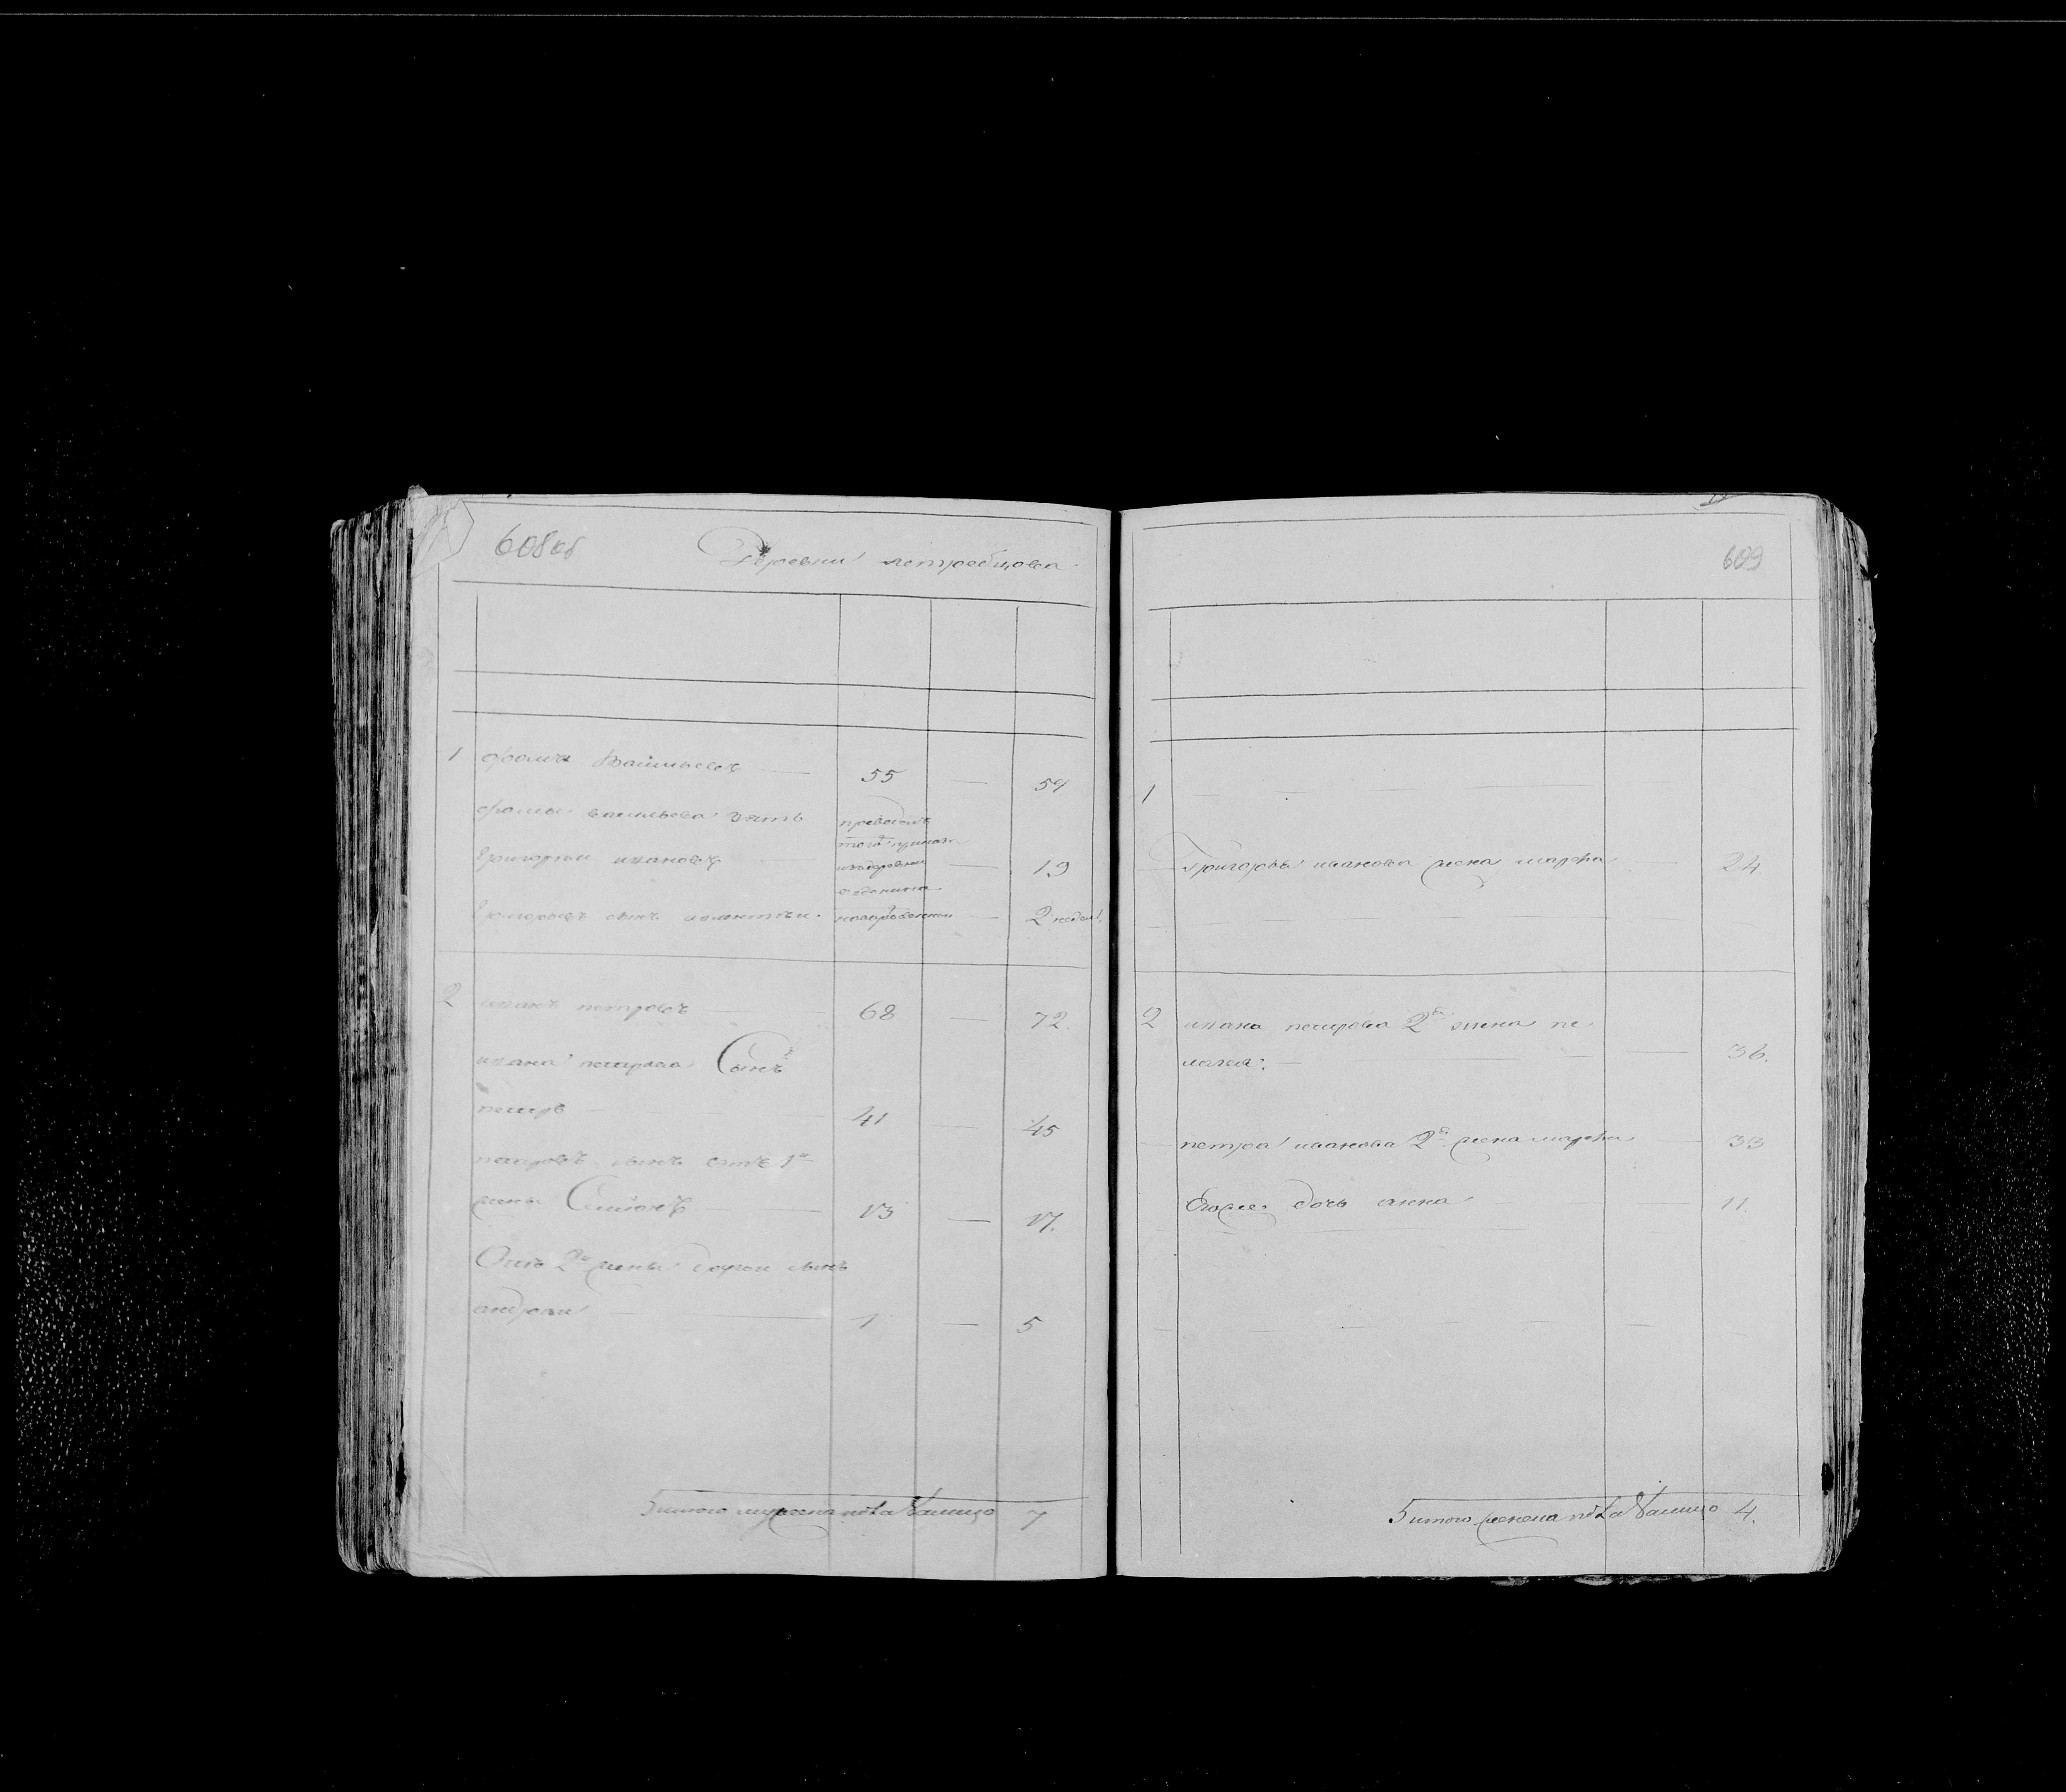 608об
Деревни ястребцова
1 фома Васильевъ 55 — 59
фомы васильева зять
Григорьи ивановъ 19
Григорьевъ сынъ новорожденной 2 недели
2 иванъ петровъ 68 — 72.
ивана петрова Сынъ
петръ 41 — 45
петровъ сынъ отъ 1й
жены Симіонъ 13 — 17.
Отъ 2й жены другои сынъ
андреи 1 — 5
итого мужеска пола На лицо 7
609
1
Григорья иванова жена марфа 24
2 ивана петрова 2я жена пе
лагея 36.
петра иванова 2я жена марфа 33
Ево же дочь анна 11.
итого женска пола На лицо 4.